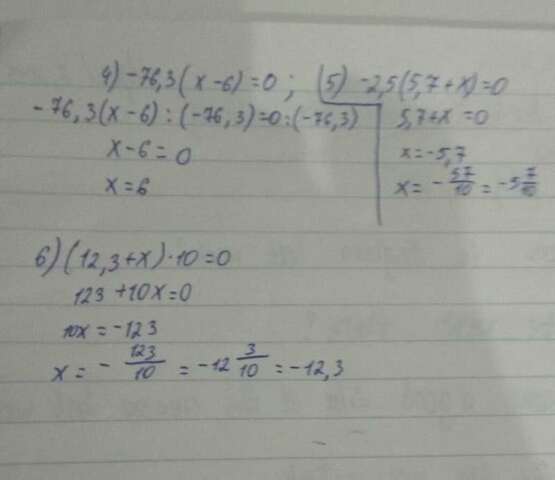 4) -76,3(x-6)=0;
-76,3(x-6):(-76,3)=0:(-76,3)
x-6=0
x=6
5) -2,5(5,7+x)=0
5,7+x=0
x=-5,7
x=-57/10=-5 7/10
6) (12,3+x)·10=0
123+10x=0
10x=-123
x=-123/10=-12 3/10=-12,3